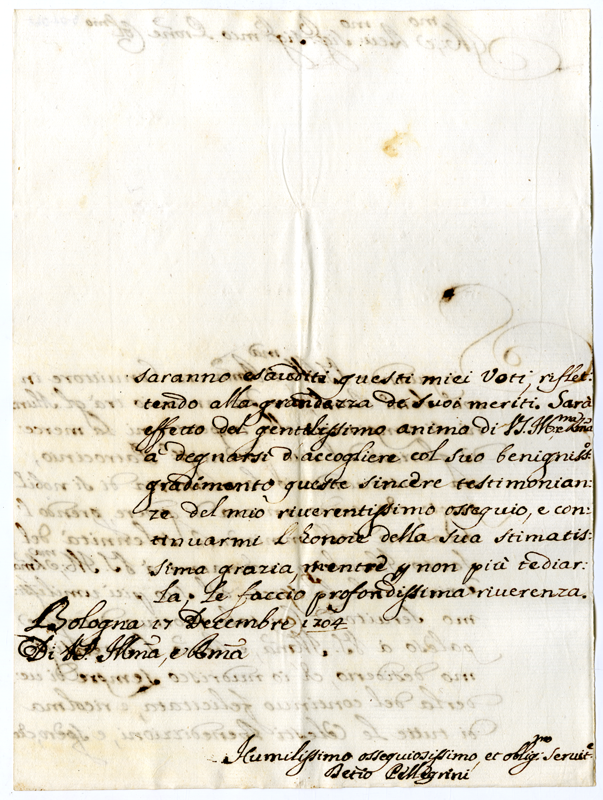 saranno esauditi questi miei Voti, riflet:
tendo alla grandezza de suoi meriti. Sarà
effetto del gentilissimo animo di V.S. Illma, e Rma
à degnarsi d'accogliere col suo benigniss.o
gradimento queste sincere testimonian:
ze del miò riverentissimo ossequio, e con:
tinuarmi l'honore della sua stimatis:
sima grazia mentre p non più tediar:
la. le faccio profondissima riverenza.
Bologna 17 Decembre 1704
Di V.S. Illma, e Rma
Humilissimo ossequiosissimo, et oblig.mo Servit.e
Pellegrini